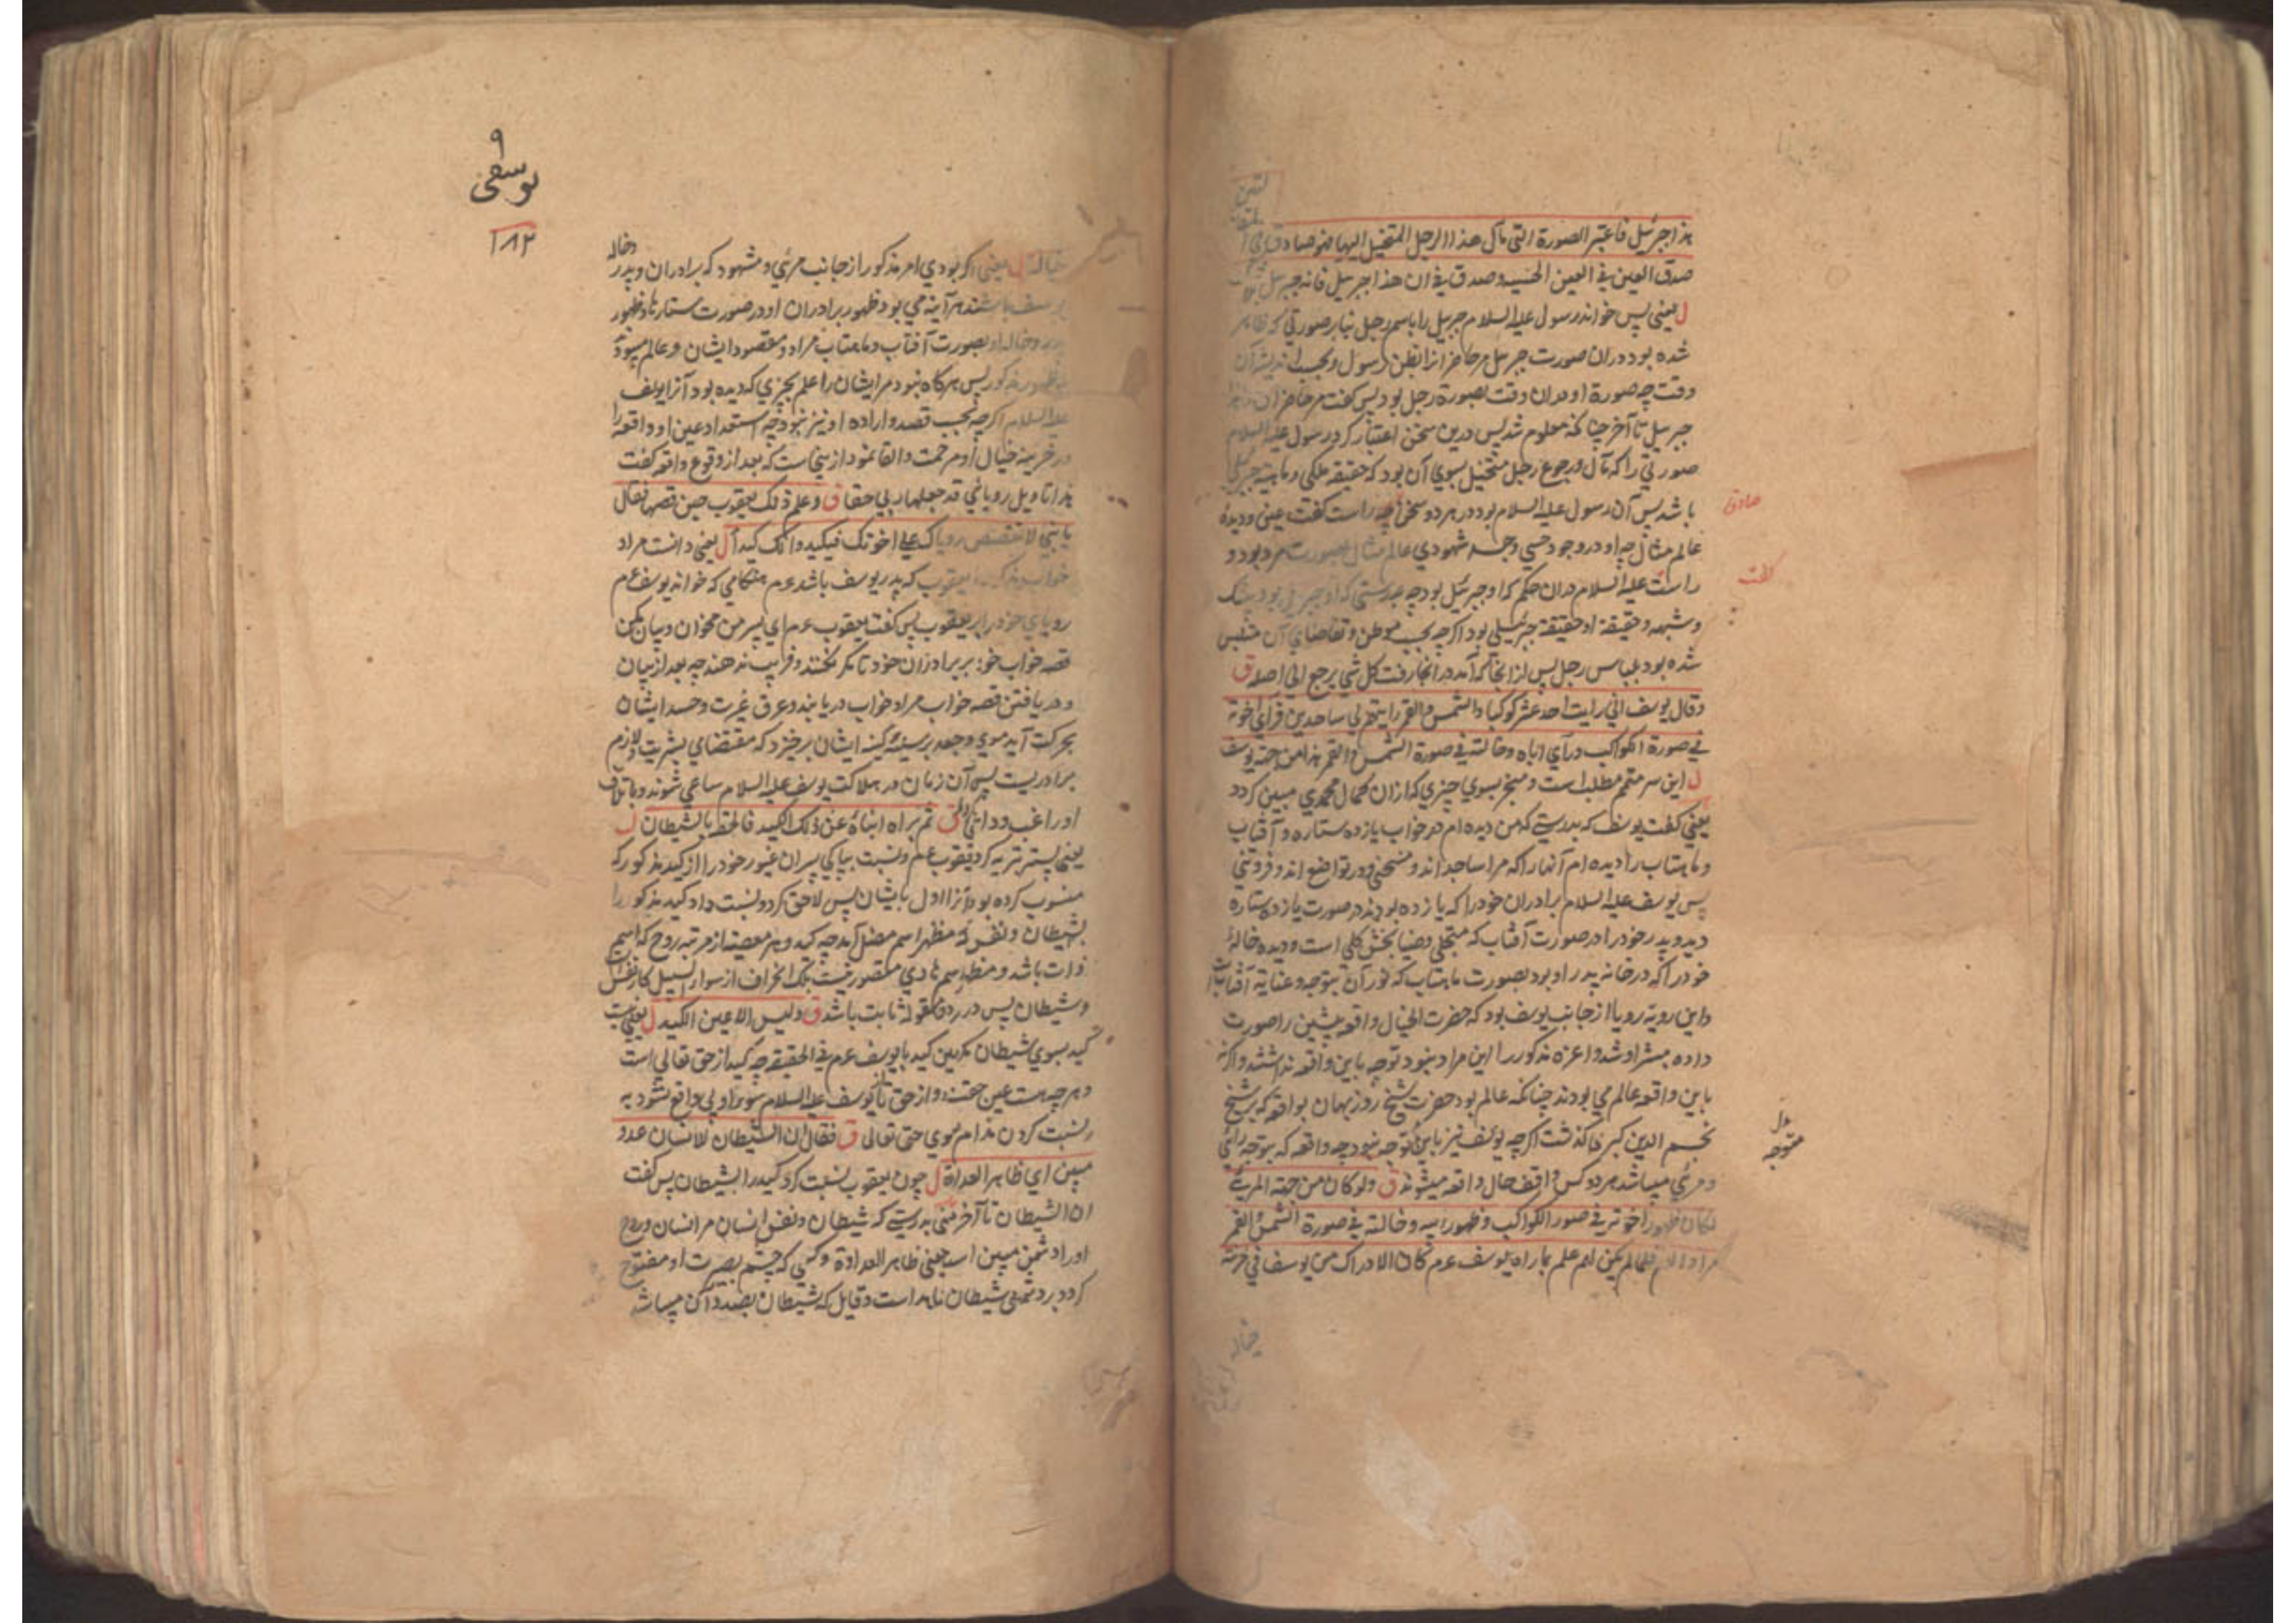 هذا جبرئيل فاعتبر الصورة التي مآل هذا الرجل المتخيل اليها فهو صادق
صدق العين في العين الحسية وصدق في ان هذا جبرئيل فانه جبرئيل بلا شك
ل يعني پس خواند رسول عليه السلام جبرئيل را باسم رجل بنابر صورتي كه ظاهر
شده بود دران صورت جبرئيل مر حاضرانرا
وقت چه صورة او دران وقت بصورة رجل بود پس گفت مر حاضران هذا
جبرئيل تا آخر چنانكه معلوم شد پس درين سخن اعتبار كرد رسول عليه السلام
صورتي را كه مآل ورجوع رجل متخيل بسوي آن بود كه حقيقة ملكي وماهية جبرئيلي
باشد پس آن رسول عليه السلام بود در هر دو سخن چه راست گفت عيني وديده
عالم مثال چه او در وجود حسي شهودي عالم مثال بصورت مرد بود و
راست عليه السلام دران حكم كه او جبرئيل بود چه بدرستي كه او جبرئيل بود بيشك
وشبهه وحقيقة او حقيقة جبرئيلي بود اگرچه بحسب موطن وتقاضاي آن متلبس
شده بود بلباس رجل پس از انجا كه آمد در انجا رفت كل شي يرجع الي اصله ق
وقال يوسف اني رايت احد عشر كوكبا والشمس والقمر رايتهم لي ساجدين فرأي اخوته
في صورة الكواكب ورأي اباه وخالته في صورة الشمس والقمر هذا من جهة يوسف
ل اين سر متمم مطلب است ومنجر بسوي چيزي كه ازان كمال محمدي مبين گردد
يعني گفت يوسف كه بدرستي كه من ديده ام در خواب يازده ستاره و آفتاب
وماهتاب را ديده ام آنها را كه مرا ساجد اند ومنحني ودر تواضع اند وفروتني
پس يوسف عليه السلام برادران خود را كه يازده بودند در صورت يازده ستاره
ديد وپدر خود را در صورت آفتاب كه متجلي وضيا بخش كلي است وديده خالهٔ
خود را كه در خانه پدر او بود بصورت ماهتاب كه نور آن بتوجه وعناية آفتاب است
واين روية رويا از جانب يوسف بود كه حضرت الخيال واقعه پيشين را صورت
داده مبشر او شد واعزه مذكور را اين مراد نبود توجه باين واقعه نداشتند واگر نه
باين واقعه عالم مي بودند چنانكه عالم بود حضرت شيخ روزبهان بواقعه كه بر شيخ
نجم الدين كبري گذشت اگرچه يوسف نيز باين متوجه نبود چه واقعه كه بتوجه رائي
ومرئي ميباشد هر دو كس واقف حال واقعه ميشوند ق ولو كان من جهة المرئي
لكان ظهور اخوته في صور الكواكب وظهور ابيه وخالته في صورة الشمس والقمر
مرادا لهم فلما لم يكن لهم علم بما راه يوسف عم كان الادراك من يوسف في خزنة
صادق
گفت
متوجه
خياله
٩
يوسفي
١٨٢
خياله ل يعني اگر بودي امر مذكور از جانب مرئي ومشهود كه برادران وپدر وخاله
يوسف باشند هر آينه مي بود ظهور برادران او در صورت ستارها وظهور
پدر وخاله او بصورت آفتاب وماهتاب مراد ومقصود ايشان وعالم ميبود
بظهور مذكور پس هرگاه نبود مر ايشان را علم بچيزي كه ديده بود آنرا يوسف
عليه السلام اگرچه بحسب قصد واراده او نيز نبود چه استعداد عين او واقعه را
در خزينه خيال او مرحمت والقا نمود ازينجاست كه بعد از وقوع واقعه گفت
هذا تاويل روياي قد جعلها ربي حقا ق وعلم ذلك يعقوب حين قصها فقال
يا بني لا تقصص روياك علي اخوتك فيكيدوا لك كيدا ل يعني دانست مراد
خواب مذكور را يعقوب كه پدر يوسف باشد عم هنگامي كه خواند يوسف عم
روياي خود را بر يعقوب پس گفت يعقوب عم اي پسر من مخوان وبيان مكن
قصه خواب خود بر برادران خود تا مكر نكنند وفريب ندهند چه بعد از بيان
ودريافتن قصه خواب مراد خواب دريابند وعرق غيرت وحسد ايشان
بحركت آيد كينه ايشان برخيزد كه مقتضاي بشريت ولازم
برادريست پس آن زمان در هلاكت يوسف عليه السلام ساعي شوند وباتلاف
او راغب ق ثم براه ابناءه عن ذلك الكيد فالحقه بالشيطان ل
يعني پستر تبريه كرد يعقوب عم ونسبت بپاكي پسران غيور خود را از كيد مذكور كه
منسوب كرده بود آنرا اول بايشان پس لاحق كرد ونسبت داد كيد مذكور را
بشيطان ونفس كه مظهر اسم مضل آمد چه كيد وهر معصية از مرتبه روح كه اسم
ذات باشد ومظهر اسم هادي متصور نيست بلكه انحراف از سواء السبيل كار نفس
وشيطان پس ثابت باشد ق وليس الا عين الكيد ل يعني نيست
كيد بسوي شيطان مگر عين كيد با يوسف عم في الحقيقة چه كيد از حق تعالي است
وهر چه هست عين حقند واز حق تا يوسف عليه السلام واقع نشود به
نسبت كردن مذام بسوي حق تعالي ق فقال ان الشيطان للانسان عدو
مبين اي ظاهر العداوة ل چون يعقوب نسبت كرد كيد را بشيطان پس گفت
ان الشيطان تا آخر معني بدرستي كه شيطان ونفس انسان مر انسان وروح
او را دشمن مبين است يعني ظاهر العداوة وكسي كه چشم بصيرت او مفتوح
گردد بر دشمني شيطان ماهر است وقايل كه شيطان بصدد آن ميباشد